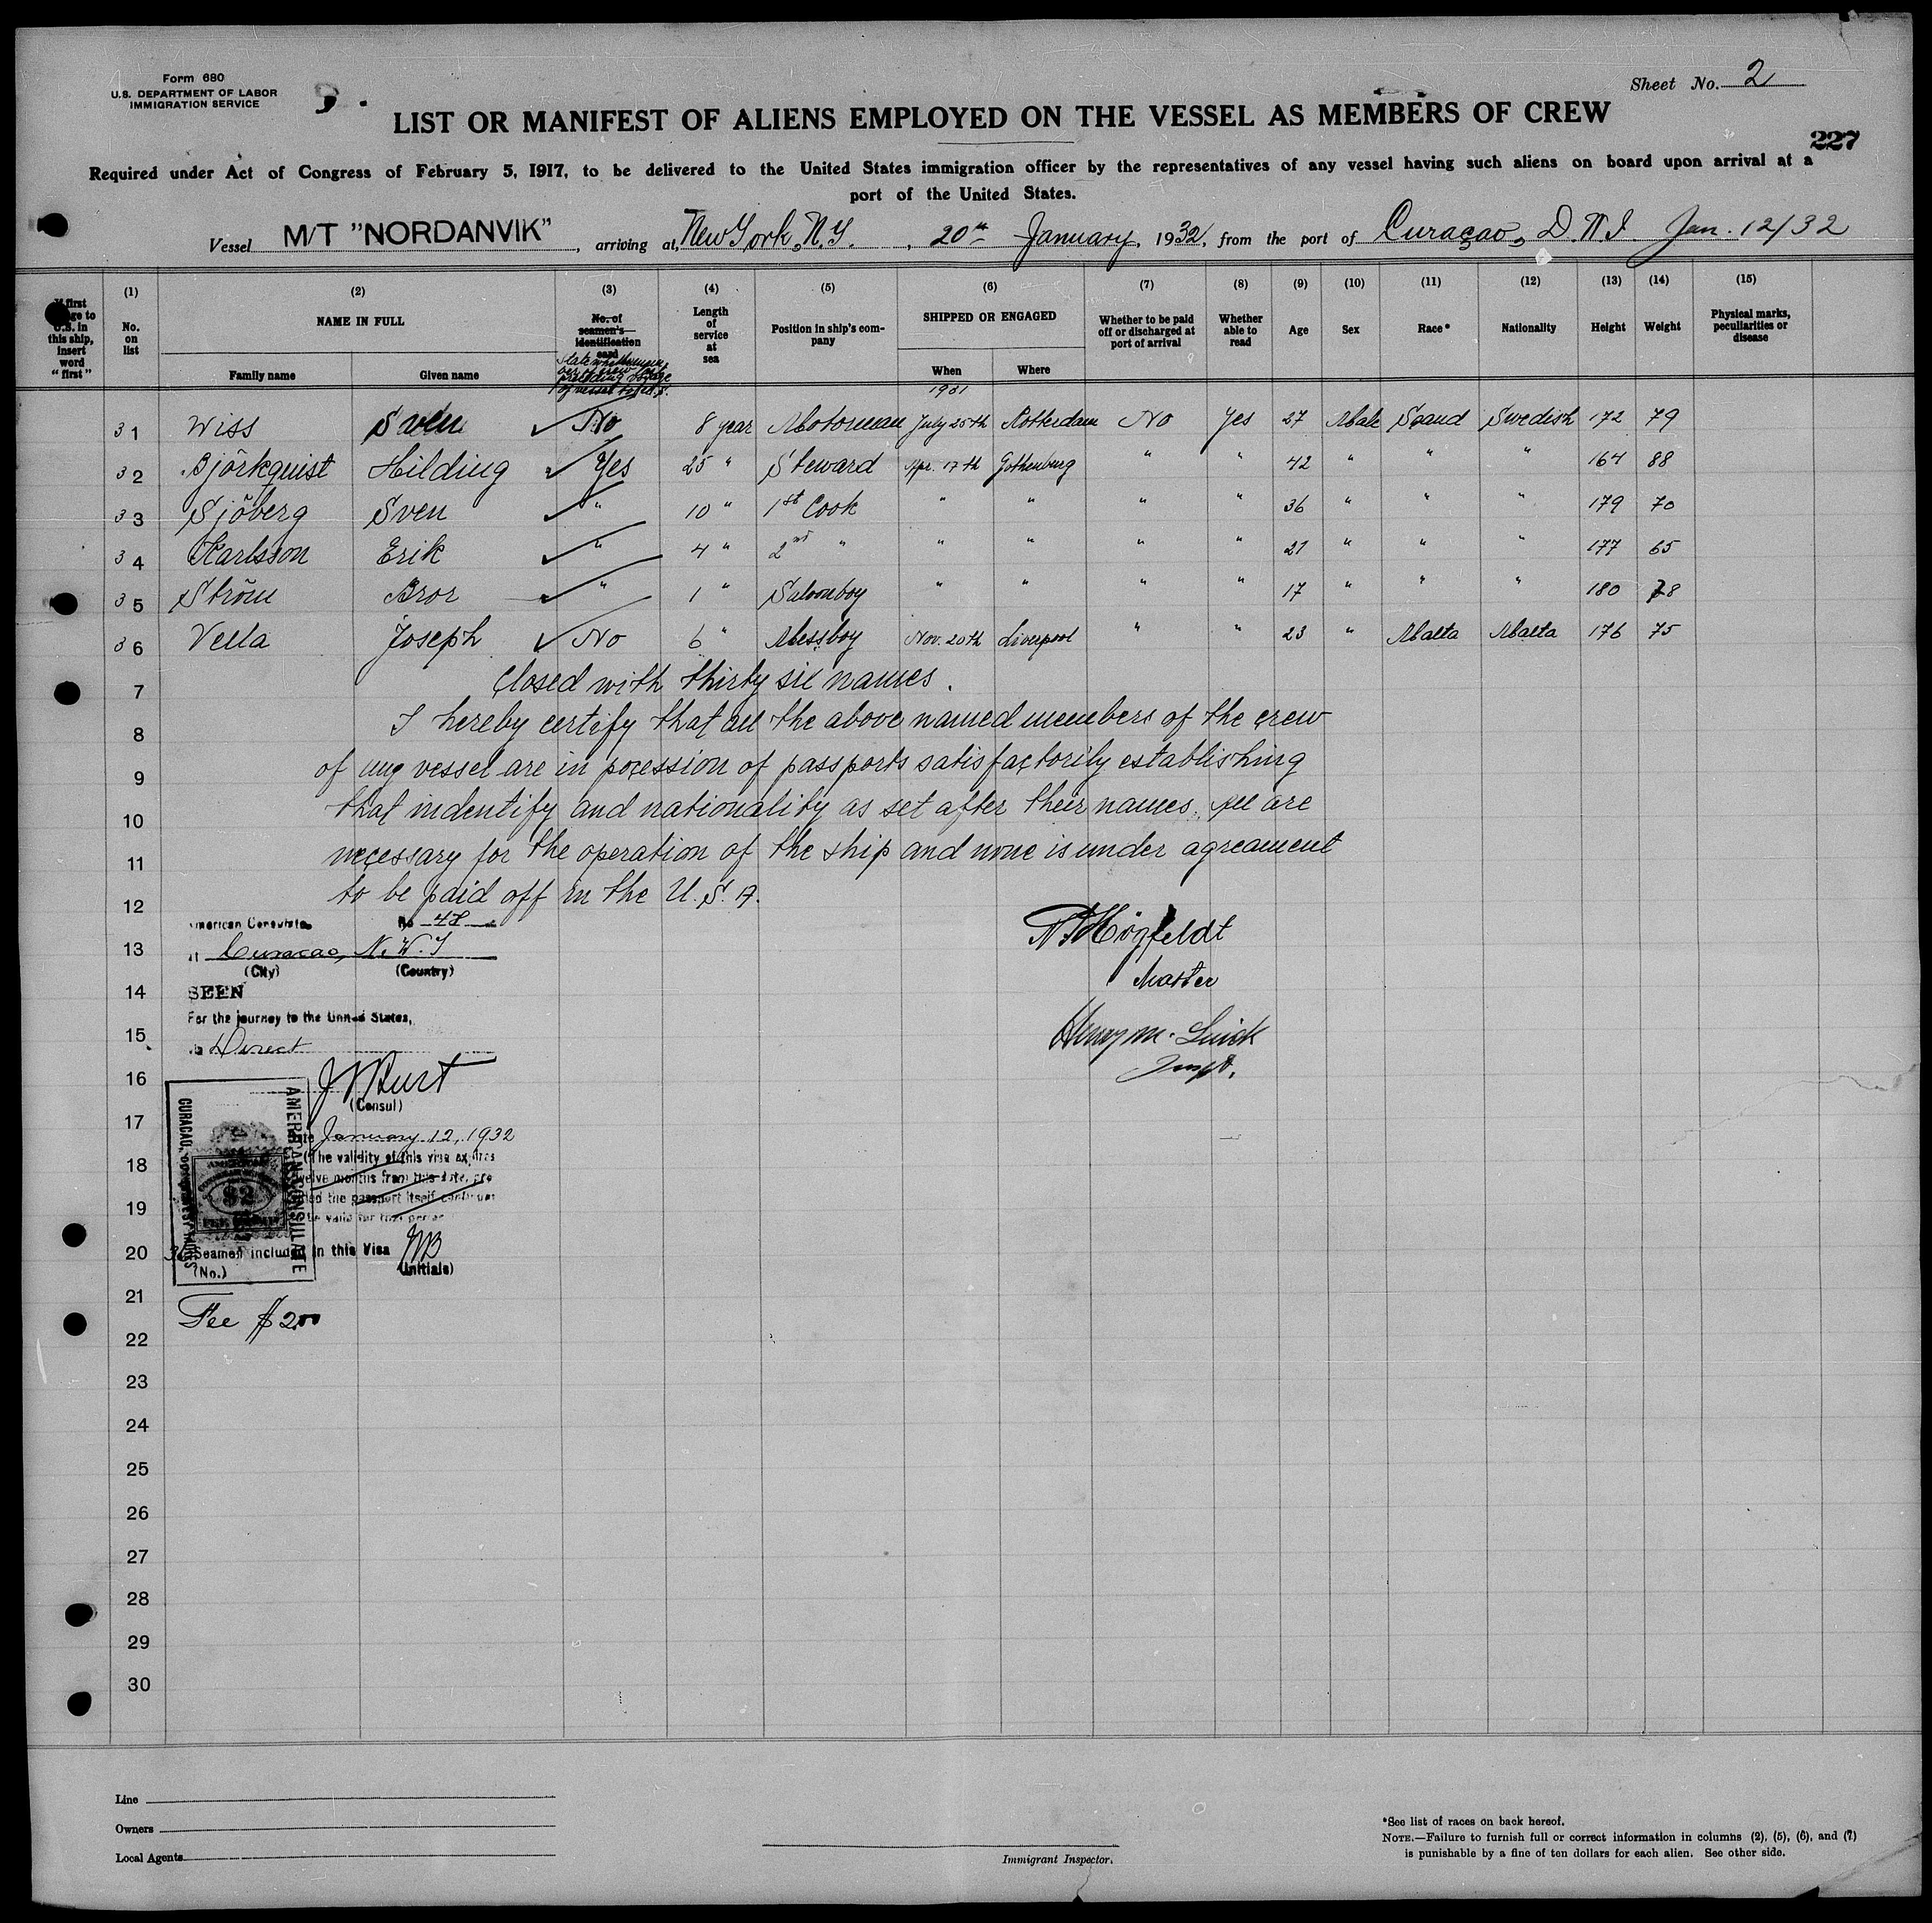 Form 680
U.S. DEPARTMENT OF LABOR
IMMIGRATION SERVICE
Sheet No. 2
LIST OR MANIFEST OF ALIENS EMPLOYED ON THE VESSEL AS MEMBERS OF CREW
227
Required under Act of Congress of February 5, 1917, to be delivered to the United States immigration officer by the representatives of any vessel having such aliens on board upon arrival at a
port of the United States.
Vessel M/T "NORDANVIK", arriving at, New York, N.Y., 20th January, 1932, from the port of Curaçao, D.N.I. Jan. 12/32
(1) (2) (3) (4) (5) (6) (7) (8) (9) (10) (11) (12) (13) (14) (15)
If first voyage to U.S. in this ship, insert word "first"
No. on list
NAME IN FULL
Family name Given name
No. of seamen's identification card
Length of service at sea
Position in ship's company
SHIPPED OR ENGAGED
When Where
Whether to be paid off or discharged at port of arrival
Whether able to read
Age
Sex
Race*
Nationality
Height
Weight
Physical marks, peculiarities or disease
1931
31 Wiss Sven No 8 year Motorman July 25th Rotterdam No Yes 27 Male Scand Swedish 172 79
32 Björkquist Hilding Yes 25 " Steward Apr. 17th Gothenburg " " 42 " " " 164 88
33 Sjöberg Sven " 10 " 1st Cook " " " " 36 " " " 179 70
34 Karlsson Erik " 4 " 2nd " " " " " 21 " " " 177 65
35 Ström Bror " 1 " Saloonboy " " " " 17 " " " 180 78
36 Vella Joseph No 6 " Messboy Nov. 20th Liverpool " " 23 " Malta Malta 176 75
7 Closed with thirty six names.
8 I hereby certify that all the above named members of the crew
9 of my vessel are in pocession of passports satisfactorily establishing
10 that indentify and nationality as set after their names. All are
11 necessary for the operation of the ship and none is under agreament
12 to be paid off in the U.S.A.
American Consulate No 48
13 at Curacao, N.W.I
(City) (Country)
14 SEEN
For the journey to the United States,
15 Direct
Master
Henry M.
Inspt.
16
(Consul)
17 Date January 12, 1932
18 (The validity of this visa expires
twelve months from this date, pro
19 vided the passport itself continues
to be valid for that period
20 36 Seamen included in this Visa
(No.) (Initials)
AMERICAN CONSULATE
CURACAO,
$2
21
Fee $2.00
22
23
24
25
26
27
28
29
30
Line
Owners
Local Agents
Immigrant Inspector.
*See list of races on back hereof.
NOTE.—Failure to furnish full or correct information in columns (2), (5), (6), and (7)
is punishable by a fine of ten dollars for each alien. See other side.